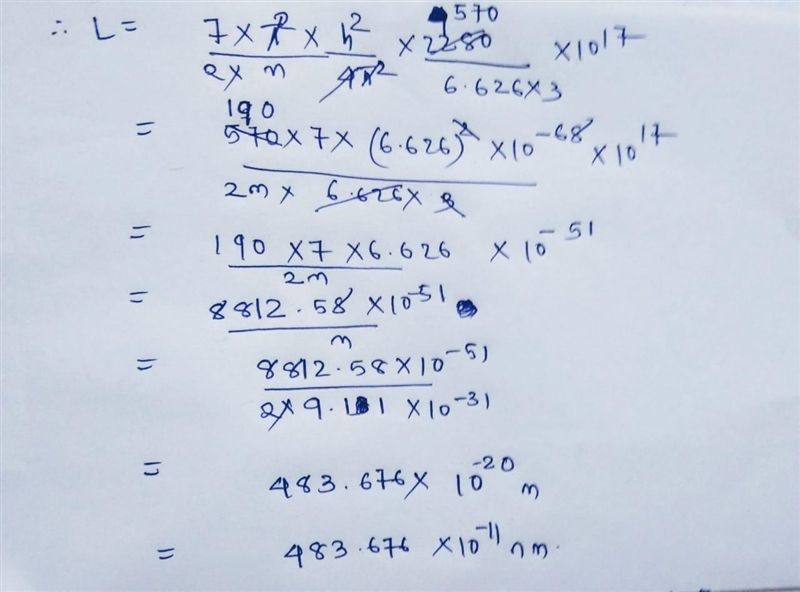 ∴ L = 7 × π² × h² / 2 × m 4π² × 2280 570 / 6.626 × 3 × 10¹⁷
= 190 570 × 7 × (6.626)² × 10⁻⁶⁸ × 10¹⁷ / 2m × 6.626 × 3
= 190 × 7 × 6.626 / 2m × 10⁻⁵¹
= 8812.58 × 10⁻⁵¹ / m
= 8812.58 × 10⁻⁵¹ / 2 × 9.11 × 10⁻³¹
= 483.676 × 10⁻²⁰ m
= 483.676 × 10⁻¹¹ nm.